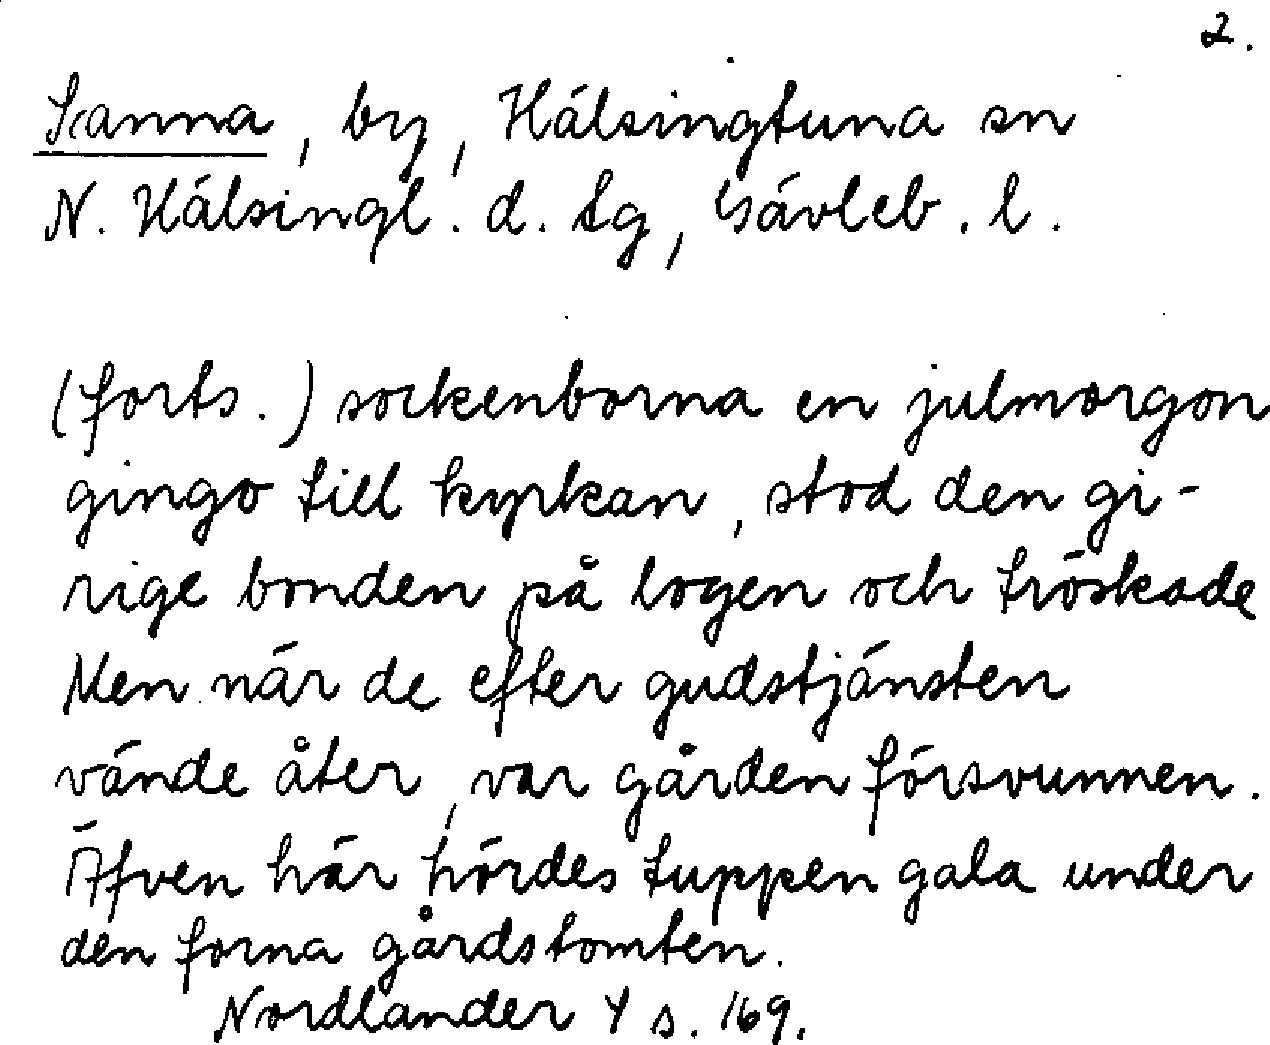 2.
Sanna, by, Hälsingtuna sn
N. Hälsingl. d. tg, Gävleb. l.
(forts.) sockenborna en julmorgon
gingo till kyrkan, stod den gi-
rige bonden på logen och tröskade
Men när de efter gudstjänsten
vände åter, var gården försvunnen.
Äfven här hördes tuppen gala under
den forna gårdstomten.
Nordlander 4 s. 169.